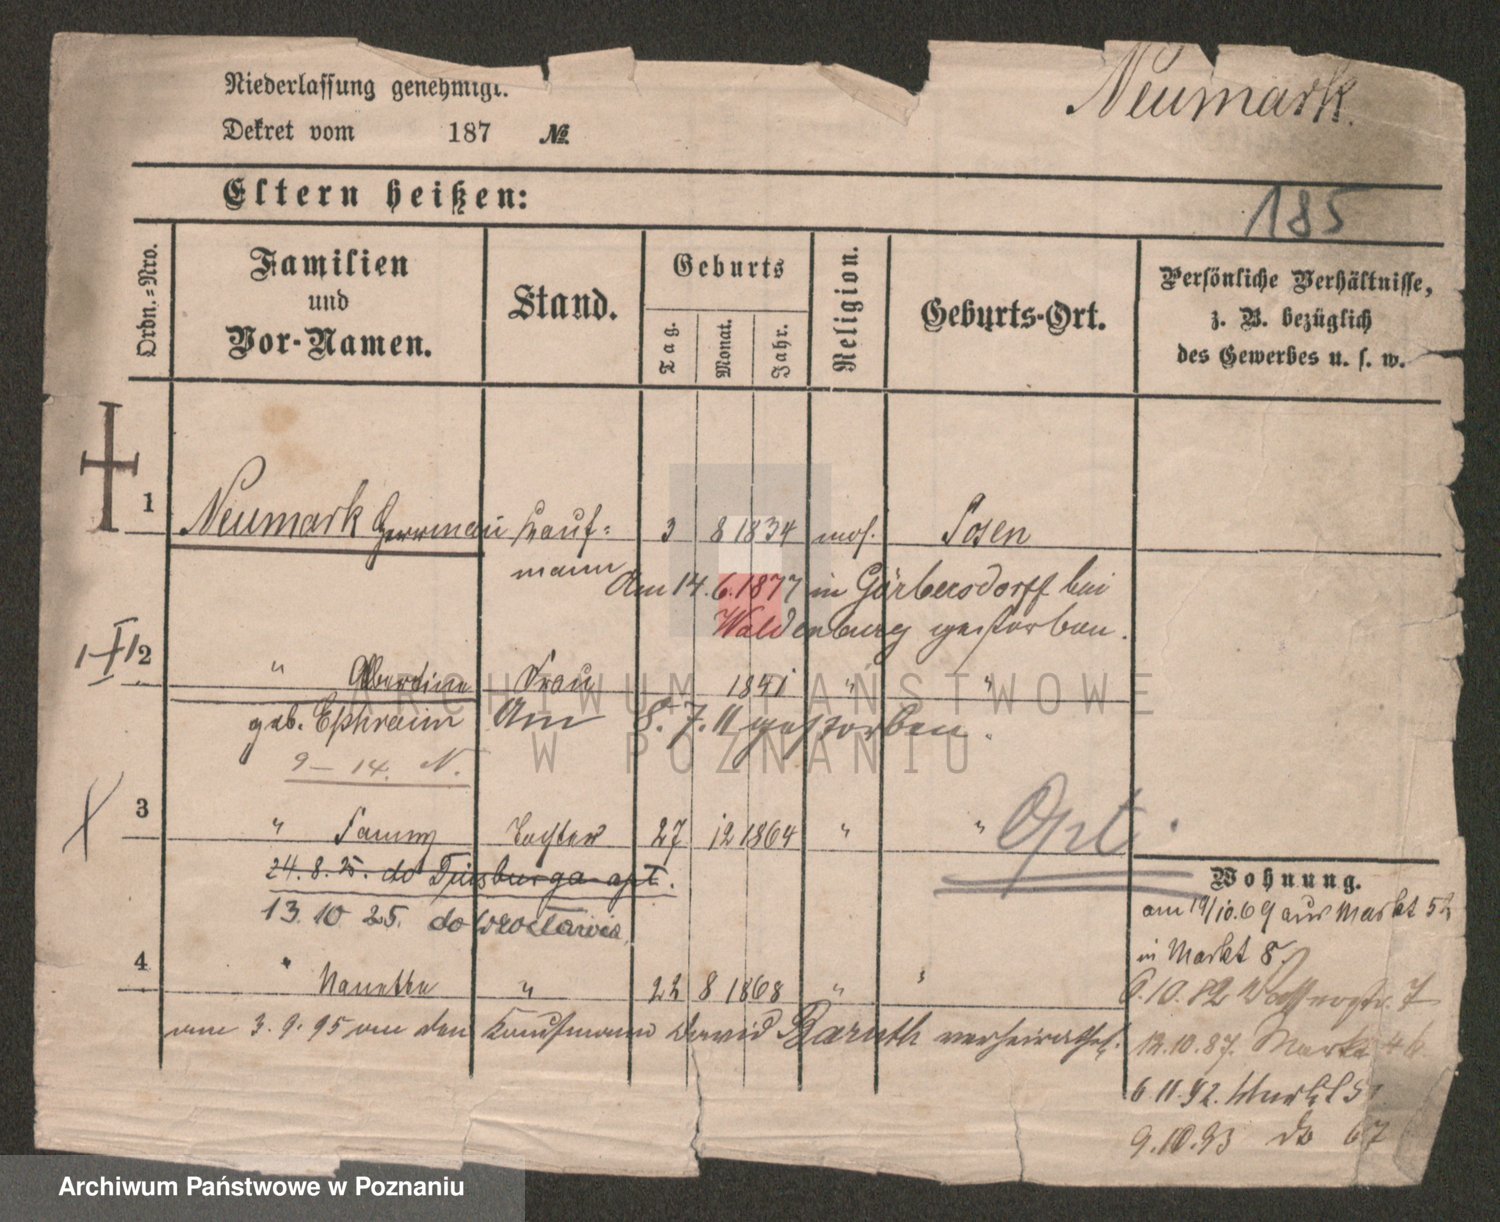 Niederlassung genehmigt.
Neumark.
Dekret vom 187 №.
Eltern heißen:
185
Ordn.-Nro.
Familien
und
Vor-Namen.
Stand.
Geburts
Tag.
Monat.
Jahr.
Religion.
Geburts-Ort.
Persönliche Verhältnisse,
z. B. bezüglich
des Gewerbes u. s. w.
1 Neumark Herrmann Kauf= 3 8 1834 mos. Posen
mann
Am 14.6.1877 in Görbersdorff bei
Waldenburg gestorben.
2 " Albertine Frau 1841 " "
geb. Ephraim Am 8.7.11 gestorben.
9 – 14. N.
3 " Fanny Tochter 27 12 1864 " "
Opt.
24.8.25. do Duisburga opt.
13.10 25. do Wrocławia
4 " Nanette " 22 8 1868 " "
am 3.9.95 an den Kaufmann David Baruth verheirathet.
Wohnung.
am 19/10.69 aus Markt 52
in Markt 8.
6.10.82 Wasserstr. 7
12.10.87. Markt 46
6 11.92. Markt
9.10.93 do 67
ARCHIWUM PAŃSTWOWE
W POZNANIU
Archiwum Państwowe w Poznaniu